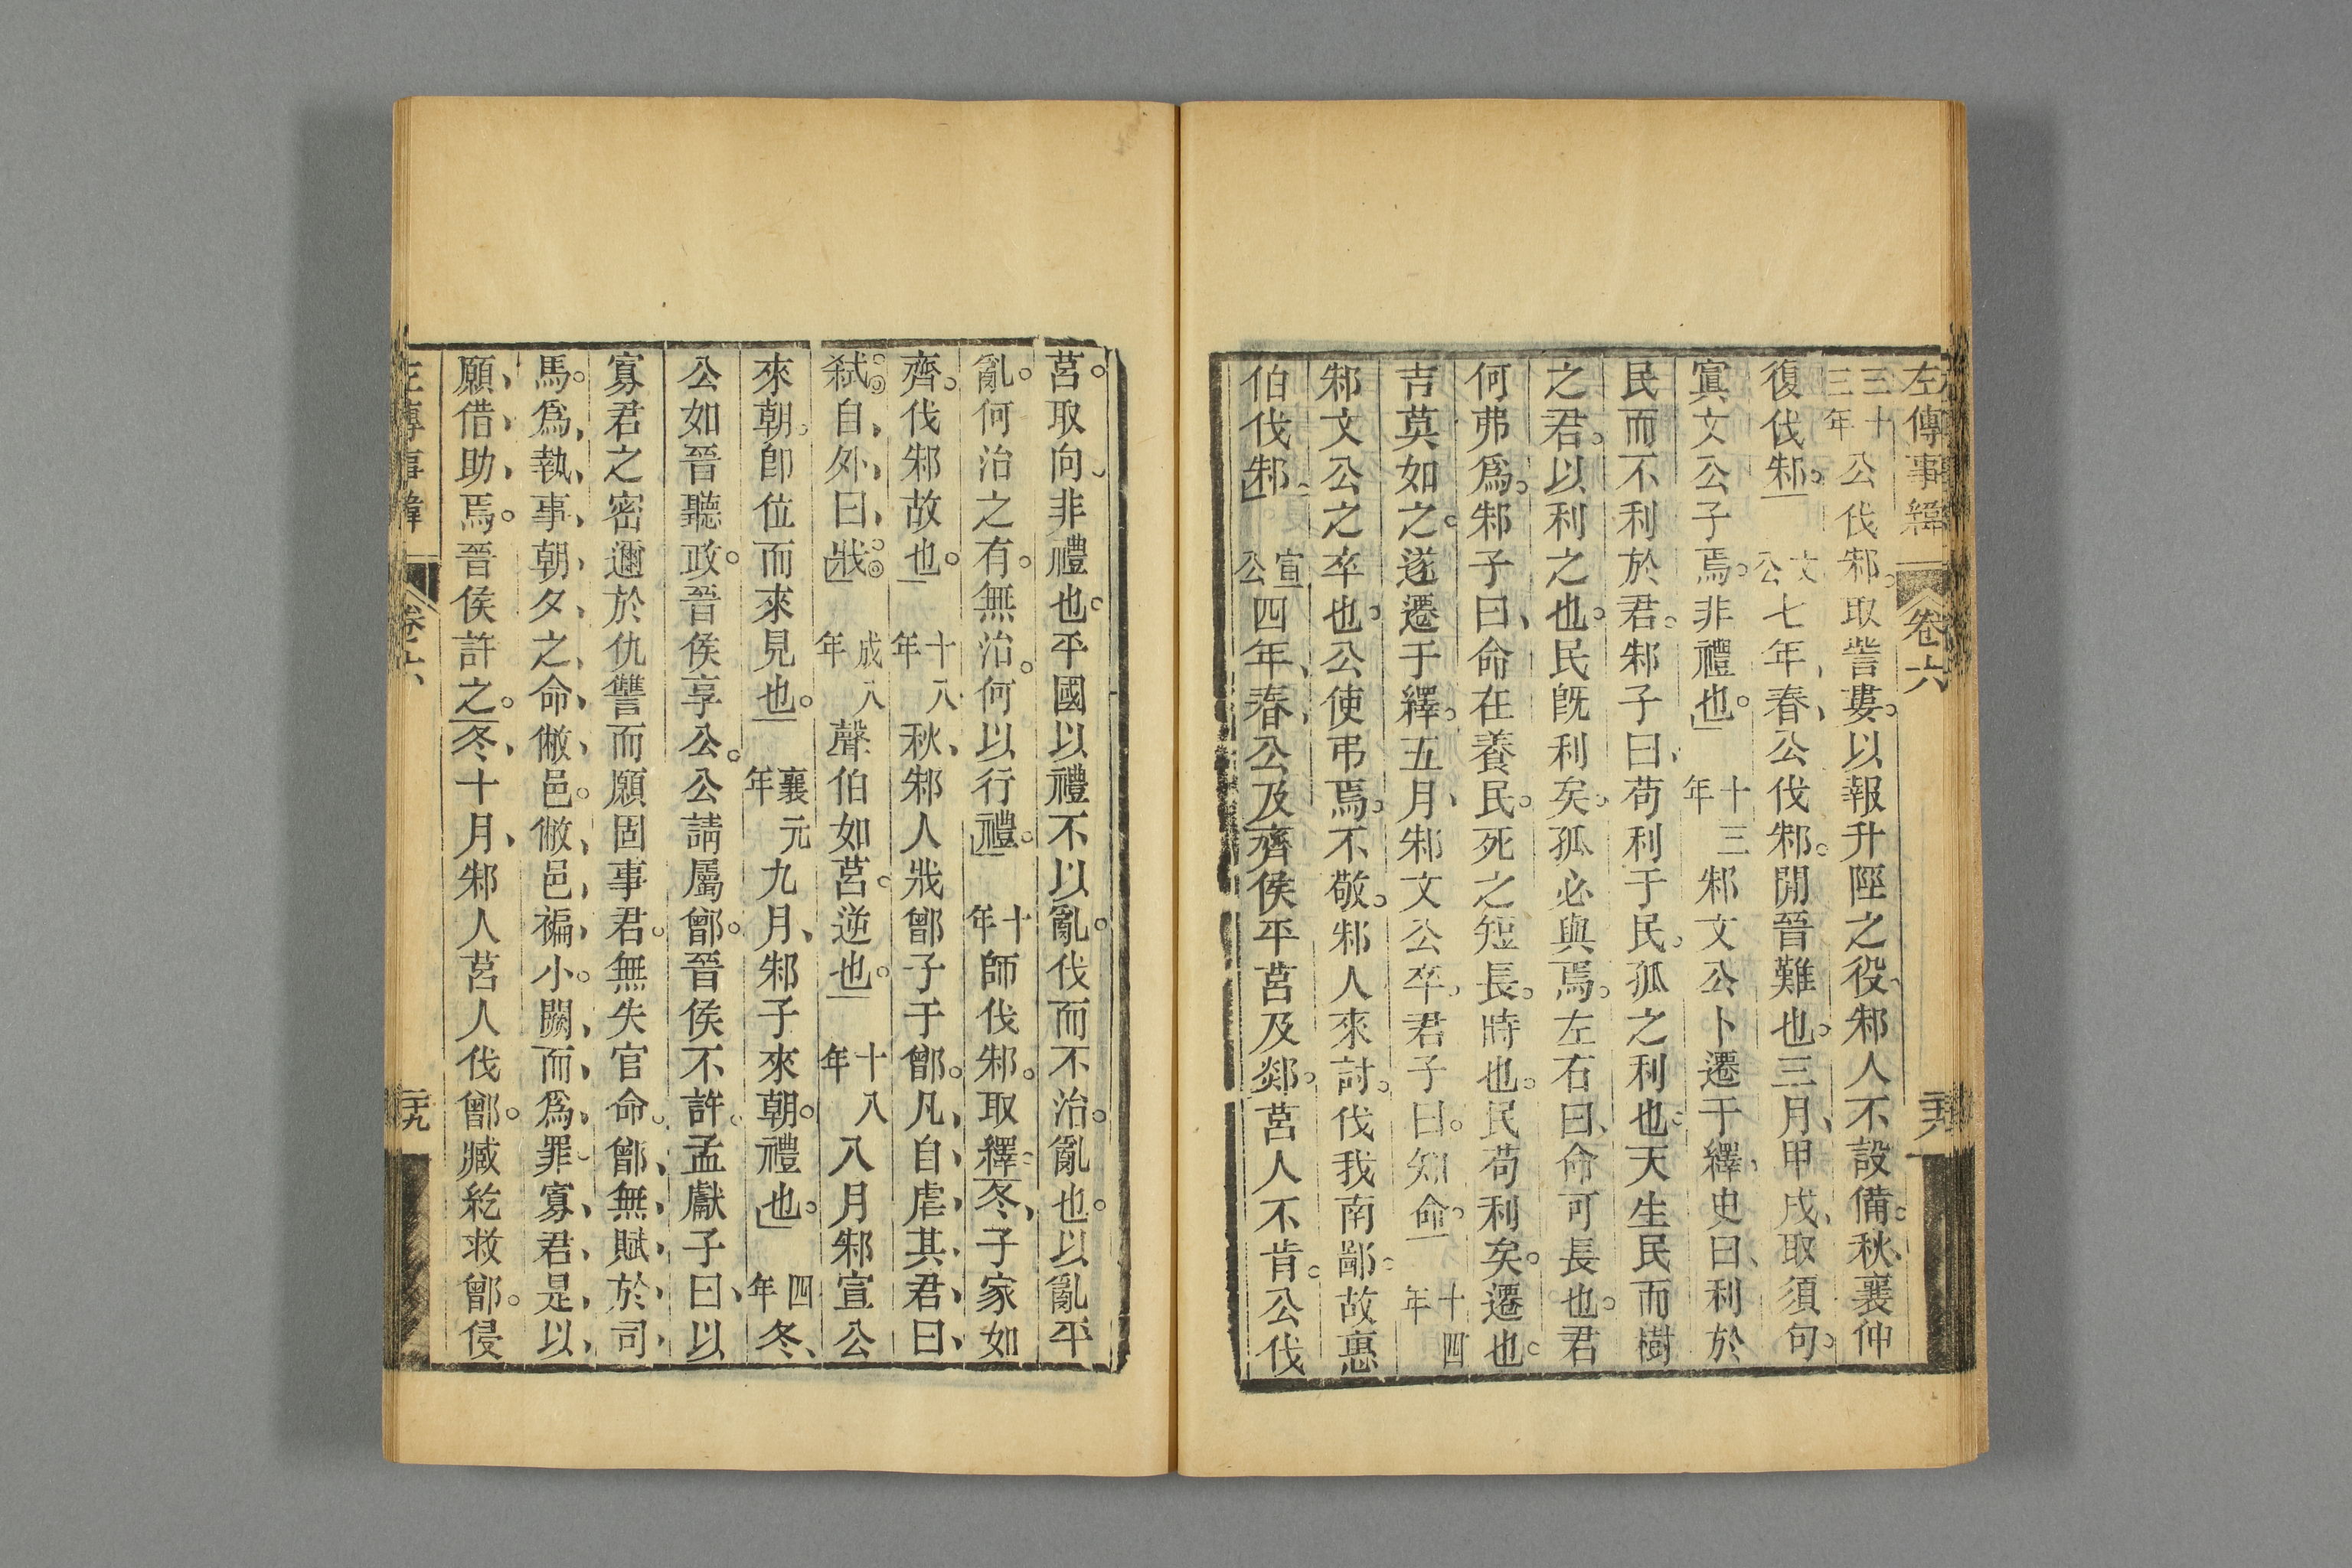 左傳事緯 卷六 二十八
三十三年公伐邾取訾婁以報升陘之役邾人不設備秋襄仲
復伐邾 文公七年春公伐邾閒晉難也三月甲戌取須句
寘文公子焉非禮也 十三年邾文公卜遷于繹史曰利於
民而不利於君邾子曰苟利于民孤之利也天生民而樹
之君以利之也民旣利矣孤必與焉左右曰命可長也君
何弗爲邾子曰命在養民死之短長時也民苟利矣遷也
吉莫如之遂遷于繹五月邾文公卒君子曰知命 十四年
邾文公之卒也公使弔焉不敬邾人來討伐我南鄙故惠
伯伐邾 宣公四年春公及齊侯平莒及郯莒人不肯公伐
莒取向非禮也平國以禮不以亂伐而不治亂也以亂平
亂何治之有無治何以行禮 十年師伐邾取繹冬子家如
齊伐邾故也 十八年秋邾人戕鄫子于鄫凡自虐其君曰
弑自外曰戕 成八年聲伯如莒逆也 十八年八月邾宣公
來朝卽位而來見也 襄元年九月邾子來朝禮也 四年冬
公如晉聽政晉侯享公公請屬鄫晉侯不許孟獻子曰以
寡君之密邇於仇讐而願固事君無失官命鄫無賦於司
馬爲執事朝夕之命敝邑敝邑褊小闕而爲罪寡君是以
願借助焉晉侯許之冬十月邾人莒人伐鄫臧紇救鄫侵
左傳事緯 卷六 二十九